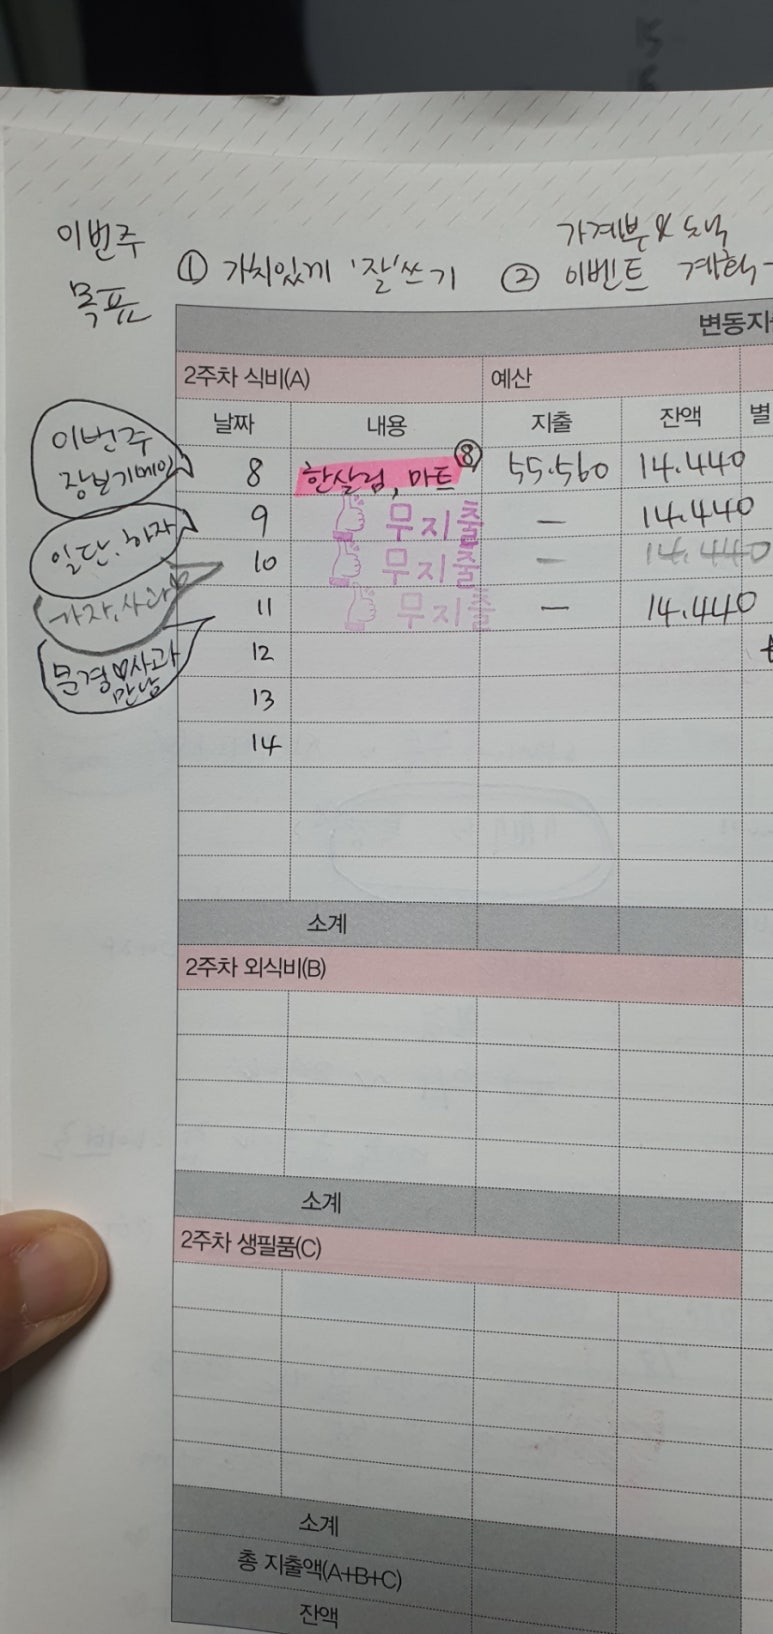 이번주
목표
① 가치있게 '잘'쓰기
가계부 & 노트
② 이벤트 계획
변동지
2주차 식비(A) 예산
날짜 내용 지출 잔액 별
이번주
장보기데이
8 한살림, 마트 ⑧ 55.560 14.440
일단. 하자
9 무지출 — 14.440
10 무지출 — 14.440
가자, 사과
11 무지출 — 14.440
문경 사과
만남
12
13
14
소계
2주차 외식비(B)
소계
2주차 생필품(C)
소계
총 지출액(A+B+C)
잔액